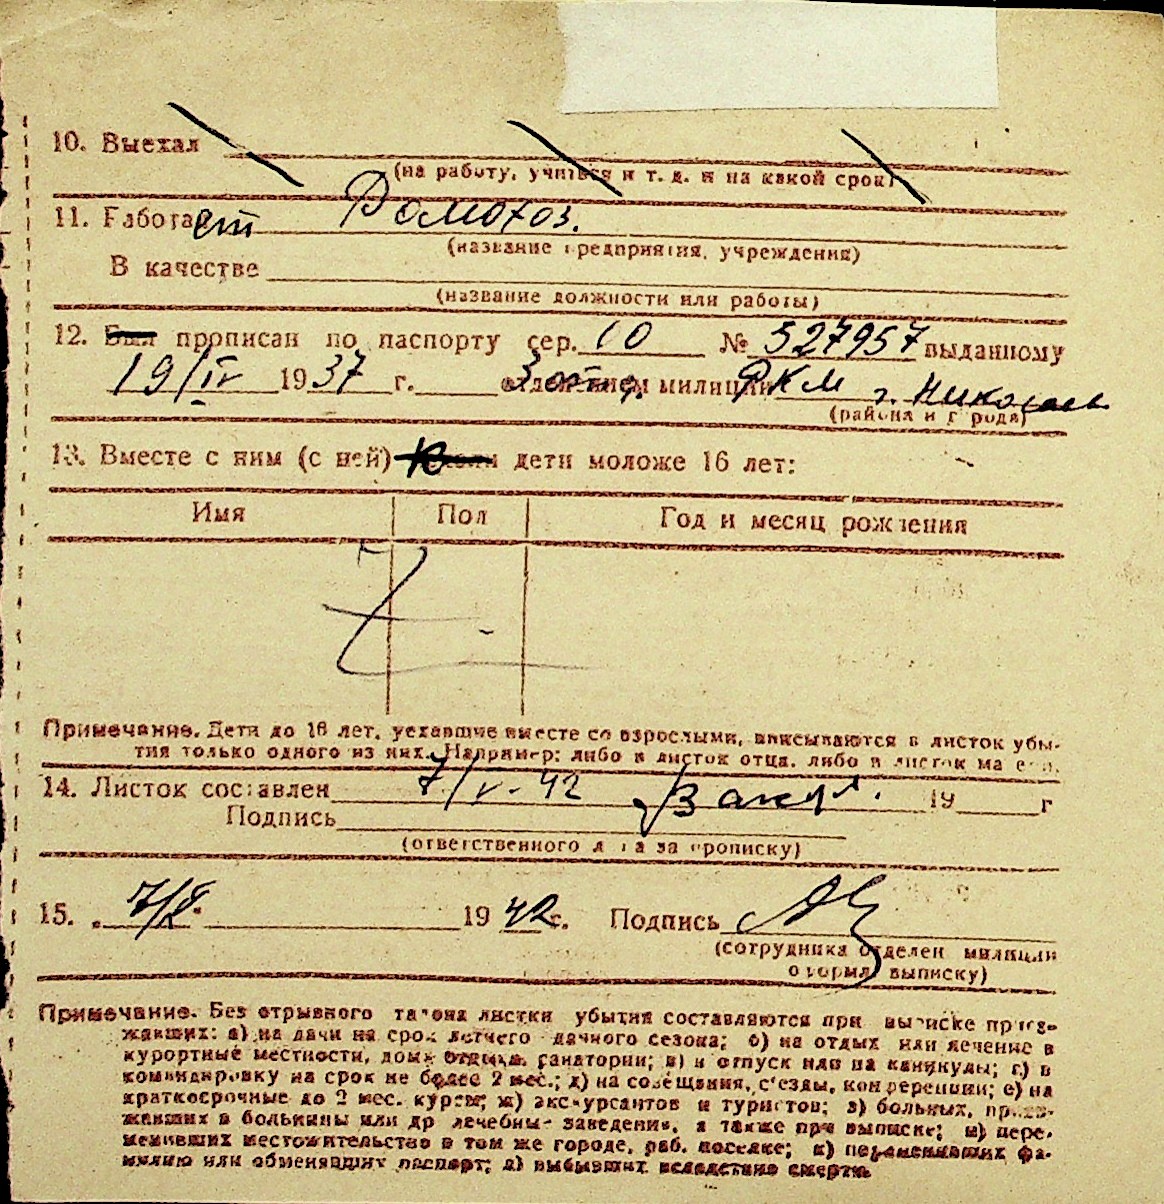 10. Выехал
(на работу, учиться и т. д. и на какой срок)
11. Работает Домохоз.
(название предприятия, учреждения)
В качестве
(название должности или работы)
12. Был прописан по паспорту сер. 10 № 527957 выданному
19/IV 1937 г. 3 отд. милиции РКМ г. Николаев
(района и города)
13. Вместе с ним (с ней) дети моложе 16 лет:
Имя Пол Год и месяц рождения
Примечание. Дети до 16 лет, уехавшие вместе со взрослыми, вписываются в листок убы-
тия только одного из них. Например: либо в листок отца, либо в листок матери.
14. Листок составлен 7/V-42 19 г
Подпись
(ответственного лица за прописку)
15. 7/V 1942 г. Подпись
(сотрудника отделен милиции
оформл выписку)
Примечание. Без отрывного талона листки убытия составляются при выписке приез-
жавших: а) на дачи на срок летнего дачного сезона; б) на отдых или лечение в
курортные местности, дома отдыха, санатории; в) в отпуск или на каникулы; г) в
командировку на срок не более 2 мес.; д) на совещания, с'езды, конференции; е) на
краткосрочные до 2 мес. курсы; ж) экскурсантов и туристов; з) больных, приез-
жавших в больницы или др лечебные заведения, а также при выписке; и) пере-
менивших местожительство в том же городе, раб. поселке; к) переменивших фа-
милию или обменявших паспорт; л) выбывших вследствие смерти.